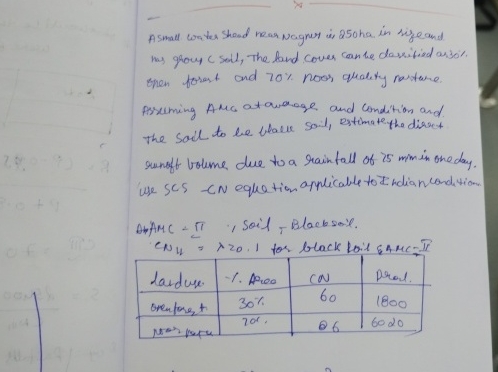 A small water shead near Nagpur is 250 ha in size and
has group C soil, The land cover can be classified as 30%
open forest and 70% poor quality pasture.
Assuming AMC at average and condition and
the soil to be black soil, estimate the direct
runoff volume due to a rainfall of 75 mm in one day.
use SCS -CN equation applicable to Indian condition
AMC = II , Soil = Black soil.
CN II = λ = 0.1 for black soil & AMC-II
Landuse % Area CN Prod.
open forest 30% 60 1800
poor 70% 86 6020